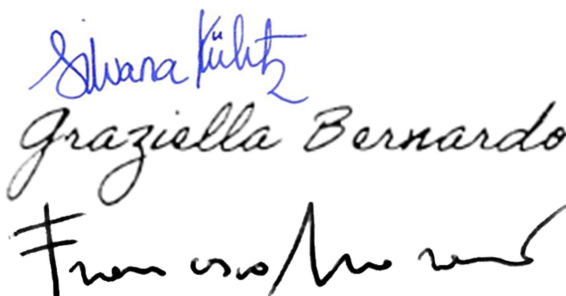 Silvana Kühtz
Graziella Bernardo
Francesco